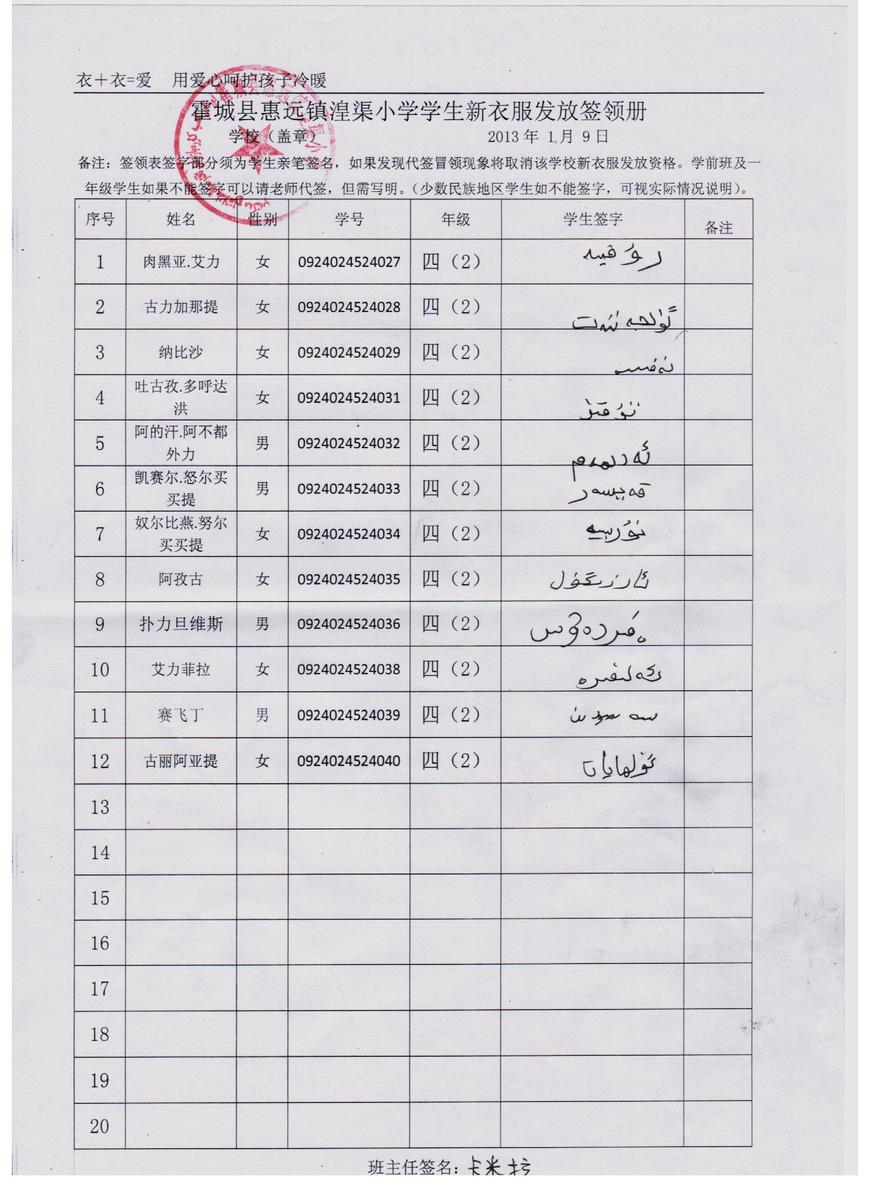 衣＋衣=爱 用爱心呵护孩子冷暖
霍城县惠远镇湟渠小学学生新衣服发放签领册
学校（盖章） 2013 年 1 月 9 日
备注：签领表签字部分须为学生亲笔签名，如果发现代签冒领现象将取消该学校新衣服发放资格。学前班及一
年级学生如果不能签字可以请老师代签，但需写明。（少数民族地区学生如不能签字，可视实际情况说明）。
序号 姓名 性别 学号 年级 学生签字 备注
1 肉黑亚.艾力 女 0924024524027 四（2）
2 古力加那提 女 0924024524028 四（2） گۈلجەننەت
3 纳比沙 女 0924024524029 四（2）
4 吐古孜.多呼达洪 女 0924024524031 四（2）
5 阿的汗.阿不都外力 男 0924024524032 四（2）
6 凯赛尔.怒尔买买提 男 0924024524033 四（2） قەيسەر
7 奴尔比燕.努尔买买提 女 0924024524034 四（2）
8 阿孜古 女 0924024524035 四（2） ئارزىگۈل
9 扑力旦维斯 男 0924024524036 四（2）
10 艾力菲拉 女 0924024524038 四（2）
11 赛飞丁 男 0924024524039 四（2）
12 古丽阿亚提 女 0924024524040 四（2）
13
14
15
16
17
18
19
20
班主任签名：卡米拉